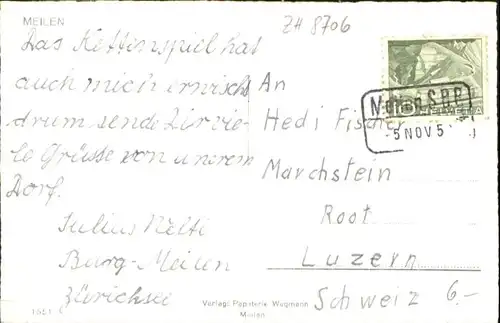 MEILEN
ZH 8706
Das Kettenspiel hat
auch mich erwischt
drum sende Dir vie-
le Grüsse von unserem
Dorf.
Julius Nelti
Burg-Meilen
Zürichsee
An
Hedi Fischer
Marchstein
Root
Luzern
Schweiz 6.-
Meilen SBB
-5 NOV 5
HELVETIA
Verlag: Papeterie Wegmann
Meilen
1551